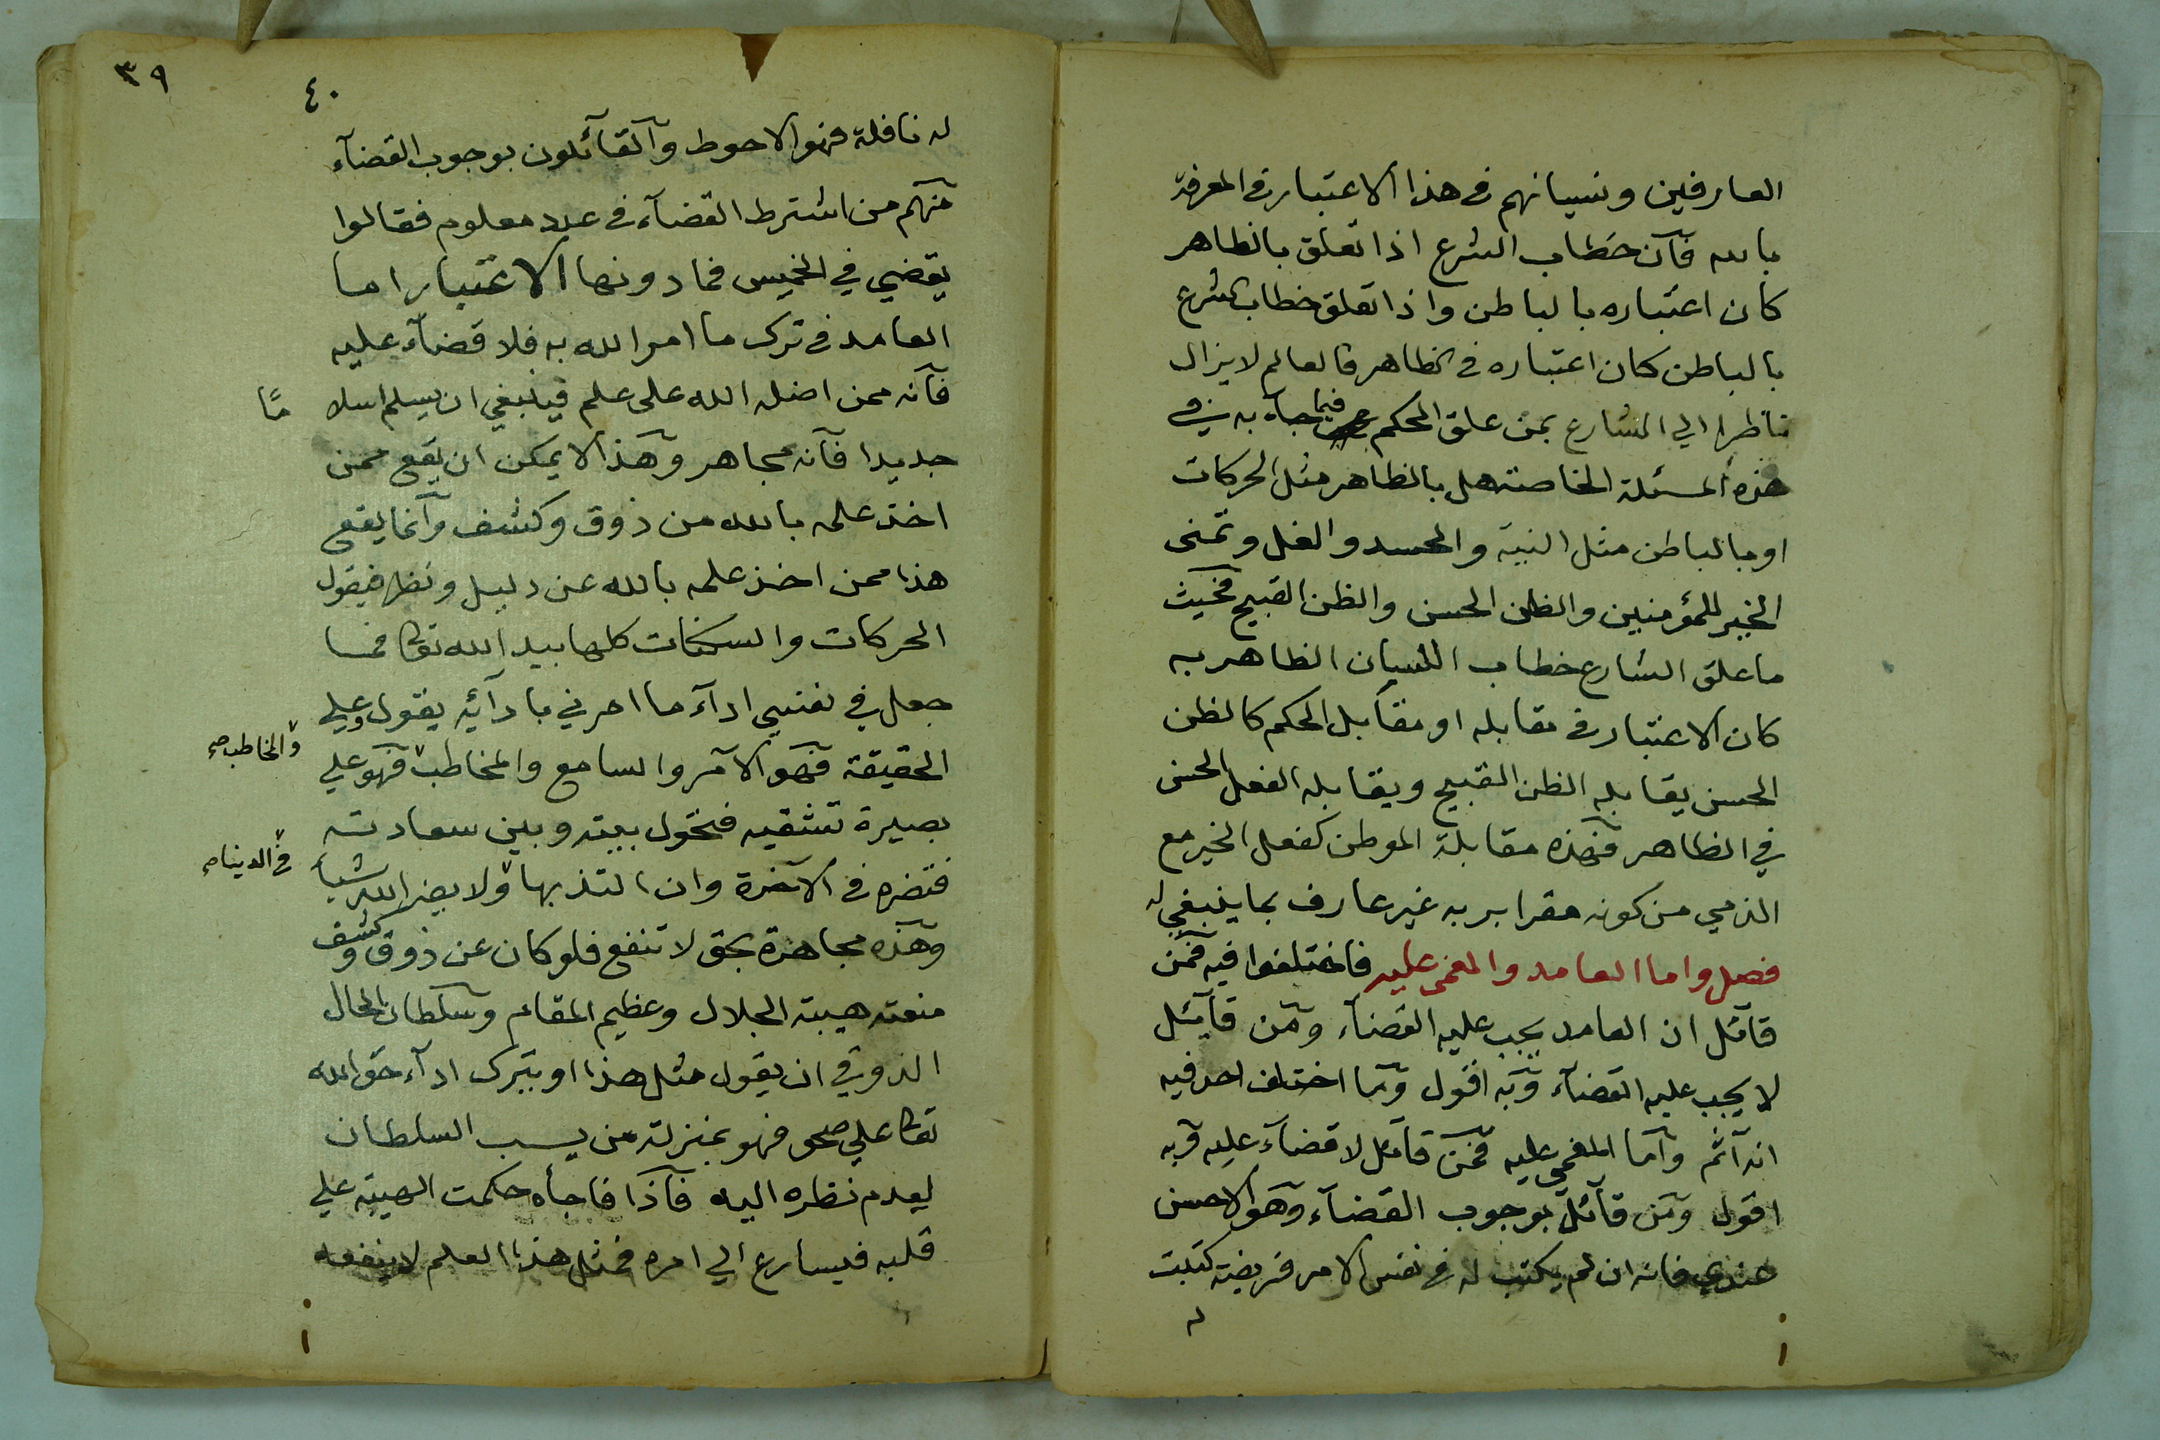 العارفين ونسيانهم في هذا الاعتبار في المعرفة
بالله فان خطاب الشرع اذا تعلق بالظاهر
كان اعتباره بالباطن واذا تعلق خطاب الشرع
بالباطن كان اعتباره في الظاهر فالعالم لا يزال
ناظرا الي الشارع بمن علق الحكم فيما جاء به في
هذه المسئلة الخاصة هل بالظاهر مثل الحركات
او بالباطن مثل النية والحسد والغل وتمنى
الخير للمؤمنين والظن الحسن والظن القبيح فحيث
ما علق الشارع خطاب اللسان الظاهر به
كان الاعتبار في مقابله او مقابل الحكم كالظن
الحسن يقابله الظن القبيح ويقابله الفعل الحسن
في الظاهر فهذه مقابلة الموطن كفعل الخير مع
الذمي من كونه مقرا بربه غير عارف بما ينبغي له
فصل واما العامد والمغمى عليه فاختلفوا فيه فمن
قآئل ان العامد يجب عليه القضآء ومن قآئل
لا يجب عليه القضآء وبه اقول وما اختلف احد فيه
انه آثم واما المغمي عليه فمن قآئل لا قضآء عليه وبه
اقول ومن قآئل بوجوب القضآء وهو الاحسن
عندي فانه ان لم يكتب له في نفس الامر فريضة كتبت
له
٣٩
٤٠
له نافلة فهو الاحوط والقآئلون بوجوب القضآء
منهم من اشترط القضآء في عدد معلوم فقالوا
يقضي في الخميس فما دونها الاعتبار اما
العامد في ترك ما امر الله به فلا قضآء عليه
فانه ممن اضله الله على علم فينبغي ان يسلم اسلا مًا
جديدا فانه مجاهر وهذا لا يمكن ان يقع ممن
اخذ علمه بالله من ذوق وكشف وانما يقع
هذا ممن اخذ علمه بالله عن دليل ونظر فيقول
الحركات والسكنات كلها بيد الله تعا فما
جعل في نفسي ادآء ما امرني بادآئه يقول وعلي
الحقيقة فهو الآمر والسامع والمخاطب فهو علي
والمخاطب صح
بصيرة تشقيه فتحول بينه وبين سعادته
فتضره في الآخرة وان التذ بها ولا يضر الله شيأ
في الدنيا صح
وهذه مجاهرة بحق لا تنفع فلو كان عن ذوق وكشف
منعته هيبة الجلال وعظيم المقام وسلطان الحال
الذوقي ان يقول مثل هذا او يترك ادآء حق الله
تعا علي صحو فهو بمنزلة من يسب السلطان
لعدم نظره اليه فاذا فاجأه حكمت الهيبة علي
قلبه فيسارع الي امره فمثل هذا العلم لا ينفعه